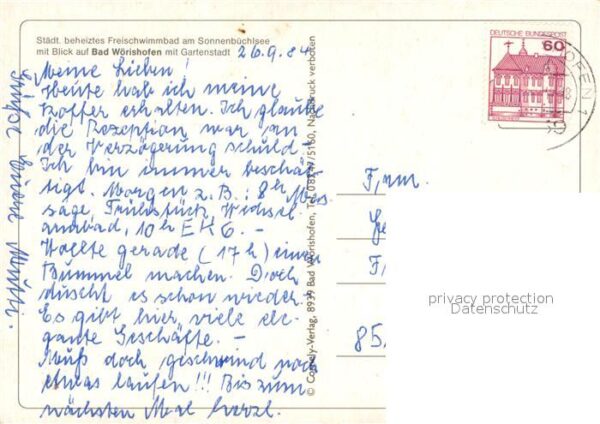 Städt. beheiztes Freischwimmbad am Sonnenbüchlsee
mit Blick auf Bad Wörishofen mit Gartenstadt
26.9.84
Meine Lieben!
Heute hab ich meine
Koffer erhalten. Ich glaube
die Rezeption war an
der Verzögerung schuld-
Ich bin immer beschäf-
tigt. Morgen z.B.: 8h Mas
sage, Frühstück, Wechsel
armbad, 10h EKG.-
Wollte gerade (17h) einen
Bummel machen. Doch
duscht es schon wieder.
Es gibt hier viele ele-
gante Geschäfte. -
Muß doch geschwind noch
etwas laufen!!! Bis zum
nächsten Mal herzl.
Grüße Eurere Mutti.
© Verlag, 8939 Bad Wörishofen, Tel. 08247/5160, Nachdruck verboten
DEUTSCHE BUNDESPOST
60
OFEN 1
Fam.
85
privacy protection
Datenschutz